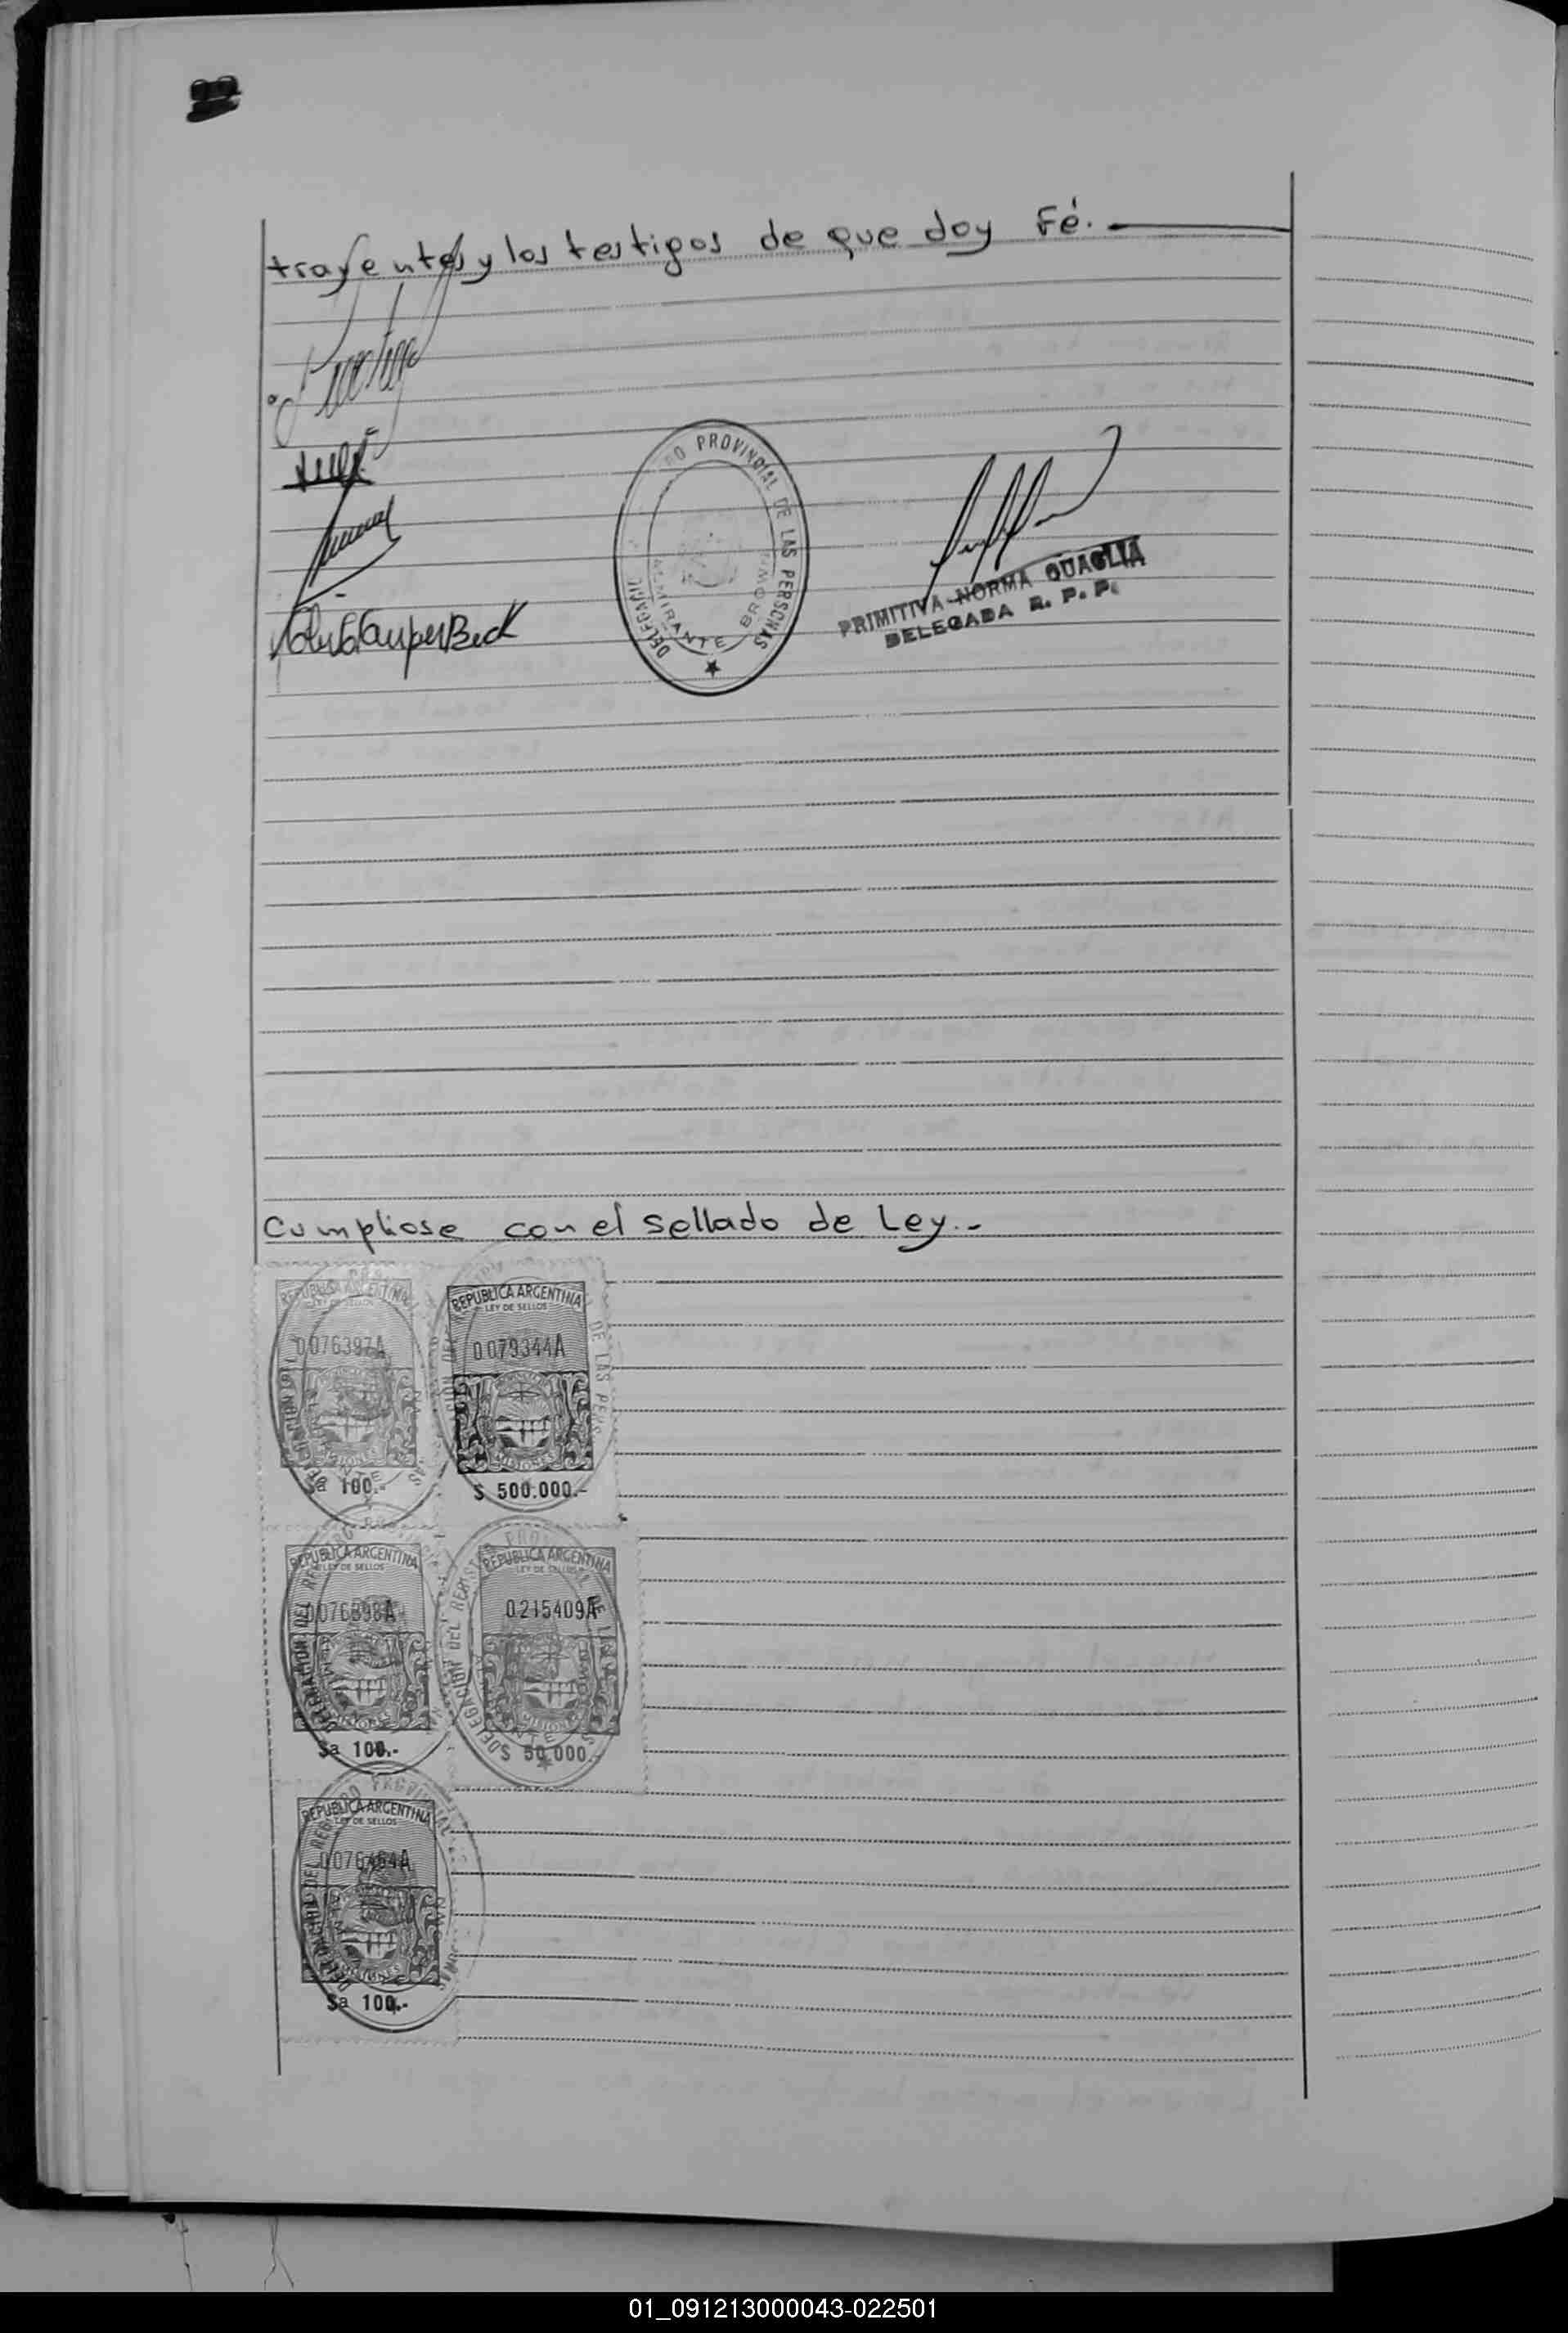 trayentes y los testigos de que doy Fé.
PROVINCIAL DE LAS PERSONAS
ALMIRANTE BROWN
PRIMITIVA NORMA QUAGLIA
DELEGADA R. P. P.
Cumpliose con el sellado de Ley.-
REPUBLICA ARGENTINA
LEY DE SELLOS
0076397A
MISIONES
$a 100.-
REPUBLICA ARGENTINA
LEY DE SELLOS
0079344A
MISIONES
$ 500.000.-
REPUBLICA ARGENTINA
LEY DE SELLOS
0076398A
MISIONES
$a 100.-
REPUBLICA ARGENTINA
LEY DE SELLOS
0215409A
MISIONES
$ 50.000.-
REPUBLICA ARGENTINA
LEY DE SELLOS
MISIONES
$a 100.-
01_091213000043-022501